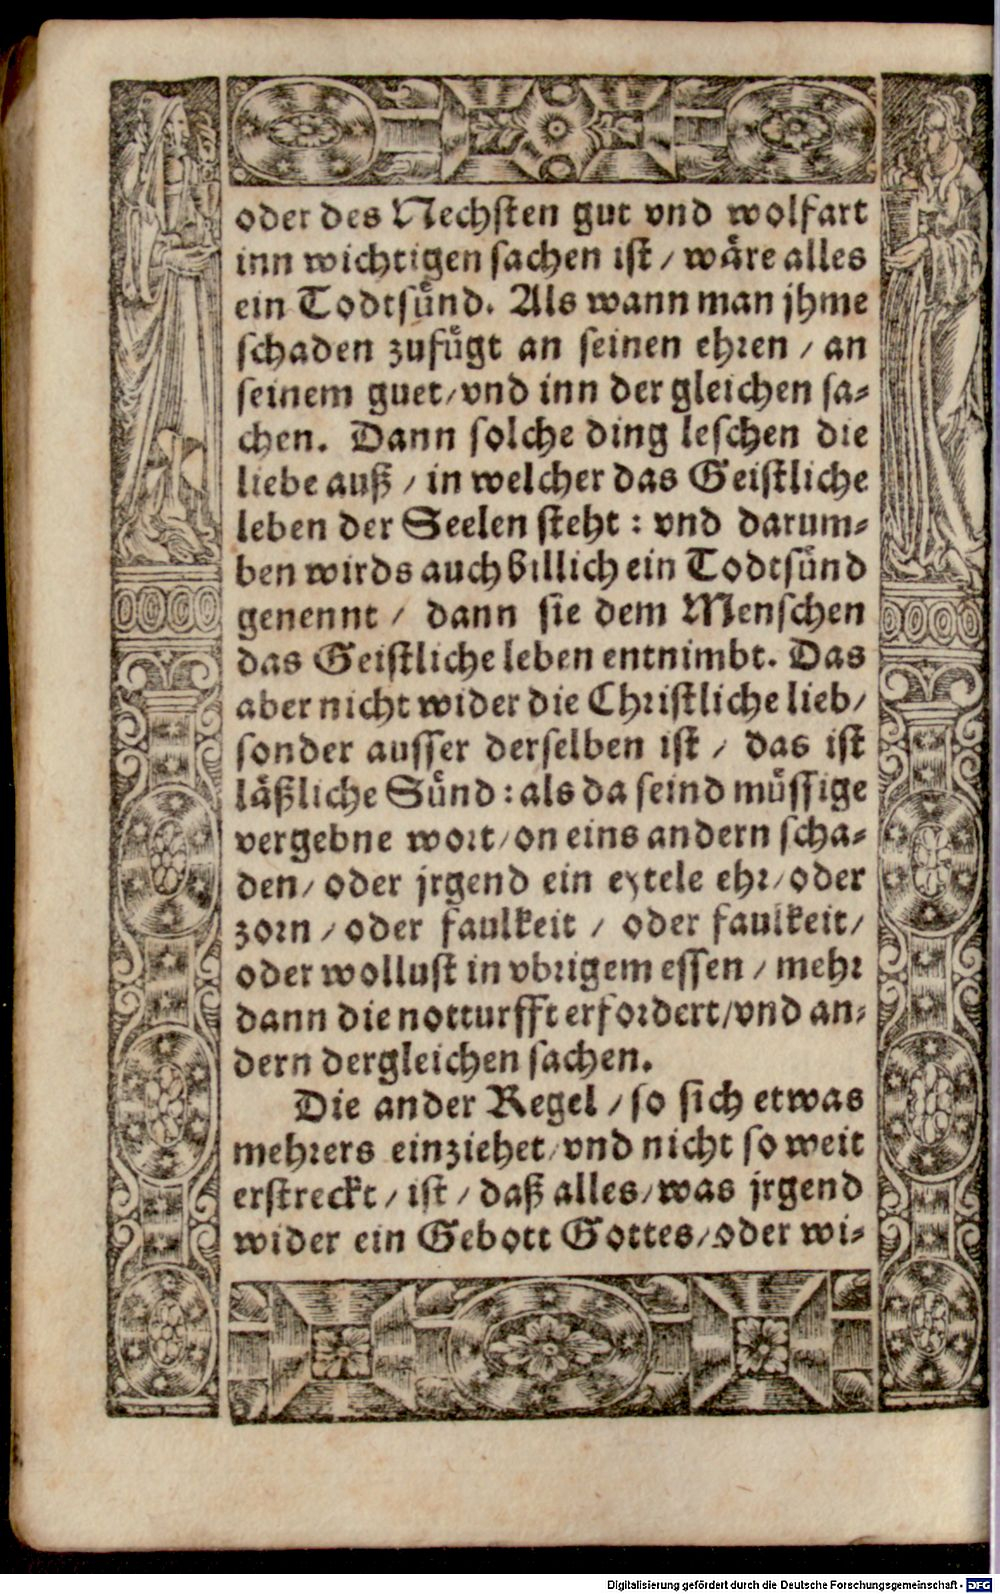 oder des Nechsten gut vnd wolfart
inn wichtigen sachen ist / wäre alles
ein Todtsünd. Als wann man jhme
schaden zufügt an seinen ehren / an
seinem guet / vnd inn der gleichen sa-
chen. Dann solche ding leschen die
liebe auß / in welcher das Geistliche
leben der Seelen steht : vnd darum-
ben wirds auch billich ein Todtsünd
genennt / dann sie dem Menschen
das Geistliche leben entnimbt. Das
aber nicht wider die Christliche lieb /
sonder ausser derselben ist / das ist
läßliche Sünd : als da seind müssige
vergebne wort / on eins andern scha-
den / oder jrgend ein eytele ehr / oder
zorn / oder faulkeit / oder faulkeit /
oder wollust in vbrigem essen / mehr
dann die notturfft erfordert / vnd an-
dern dergleichen sachen.
Die ander Regel / so sich etwas
mehrers einziehet / vnd nicht so weit
erstreckt / ist / daß alles / was jrgend
wider ein Gebott Gottes / oder wi-
Digitalisierung gefördert durch die Deutsche Forschungsgemeinschaft - DFG